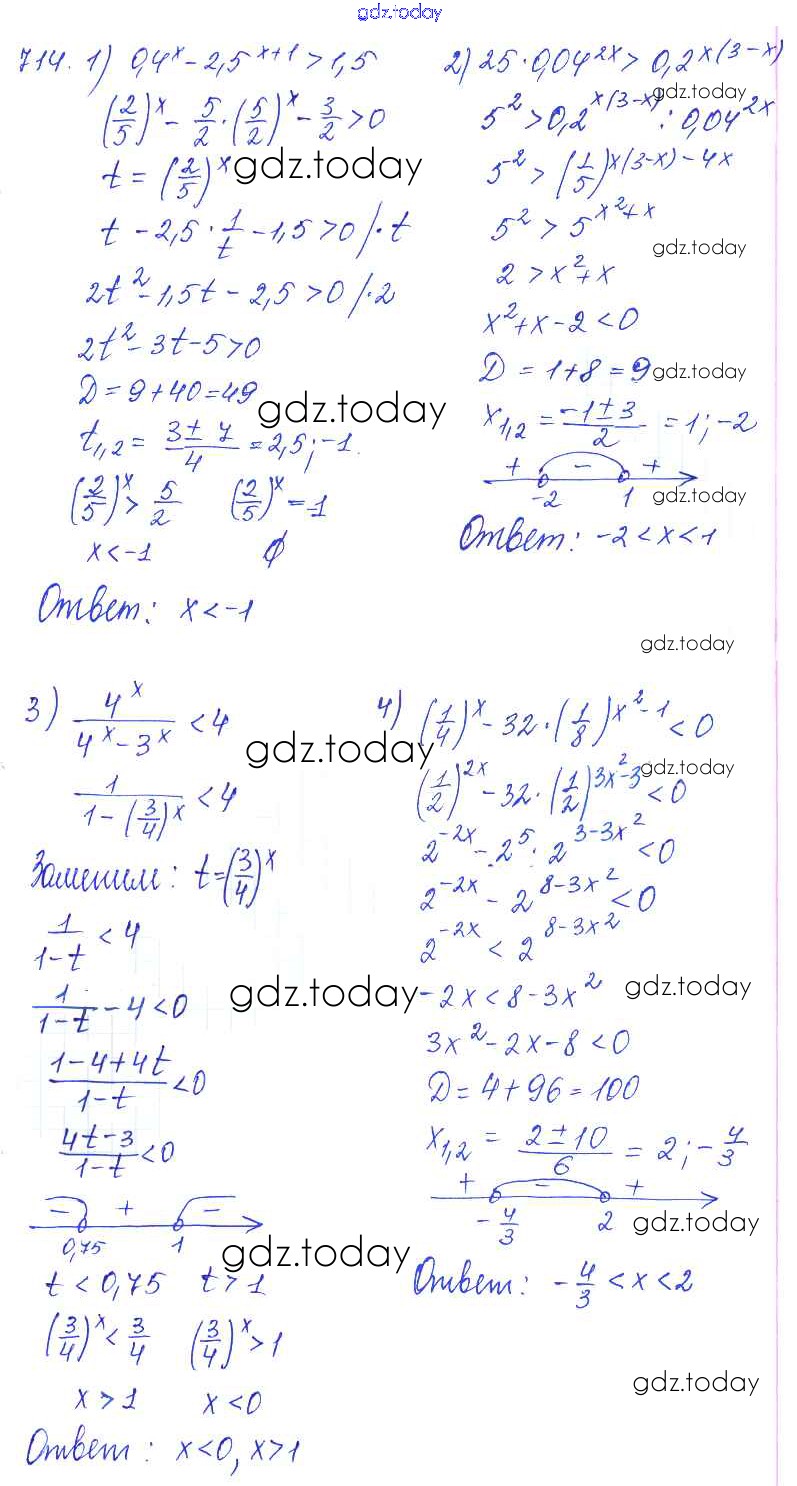 gdz.today
714. 1) 0,4^x - 2,5^{x+1} > 1,5
(2/5)^x - 5/2 · (5/2)^x - 3/2 > 0
t = (2/5)^x gdz.today
t - 2,5 · 1/t - 1,5 > 0 /· t
2t^2 - 1,5t - 2,5 > 0 /·2
2t^2 - 3t - 5 > 0
D = 9 + 40 = 49
gdz.today
t_{1,2} = (3 ± 7)/4 = 2,5; -1.
(2/5)^x > 5/2 (2/5)^x = -1
x < -1 ∅
Ответ: x < -1
2) 25 · 0,04^{2x} > 0,2^{x(3-x)}
gdz.today
5^2 > 0,2^{x(3-x)} : 0,04^{2x}
5^2 > (1/5)^{x(3-x) - 4x}
5^2 > 5^{x^2+x}
gdz.today
2 > x^2 + x
x^2 + x - 2 < 0
D = 1 + 8 = 9 gdz.today
x_{1,2} = (-1 ± 3)/2 = 1; -2
+ - +
-2 1 gdz.today
Ответ: -2 < x < 1
gdz.today
3) 4^x/(4^x - 3^x) < 4
gdz.today
1/(1 - (3/4)^x) < 4
Заменим: t = (3/4)^x
1/(1-t) < 4
1/(1-t) - 4 < 0 gdz.today
(1-4+4t)/(1-t) < 0
(4t-3)/(1-t) < 0
- + -
0,75 1
gdz.today
t < 0,75 t > 1
(3/4)^x < 3/4 (3/4)^x > 1
x > 1 x < 0
Ответ: x < 0, x > 1
4) (1/4)^x - 32 · (1/8)^{x^2-1} < 0
gdz.today
(1/2)^{2x} - 32 · (1/2)^{3x^2-3} < 0
2^{-2x} - 2^5 · 2^{3-3x^2} < 0
2^{-2x} - 2^{8-3x^2} < 0
2^{-2x} < 2^{8-3x^2}
-2x < 8 - 3x^2 gdz.today
3x^2 - 2x - 8 < 0
D = 4 + 96 = 100
x_{1,2} = (2 ± 10)/6 = 2; -4/3
+ - +
-4/3 2 gdz.today
Ответ: -4/3 < x < 2
gdz.today